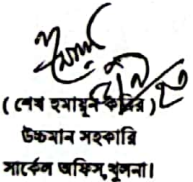 ( শেখ হুমায়ুন কবির )
উচ্চমান সহকারি
সার্কেল অফিস, খুলনা।